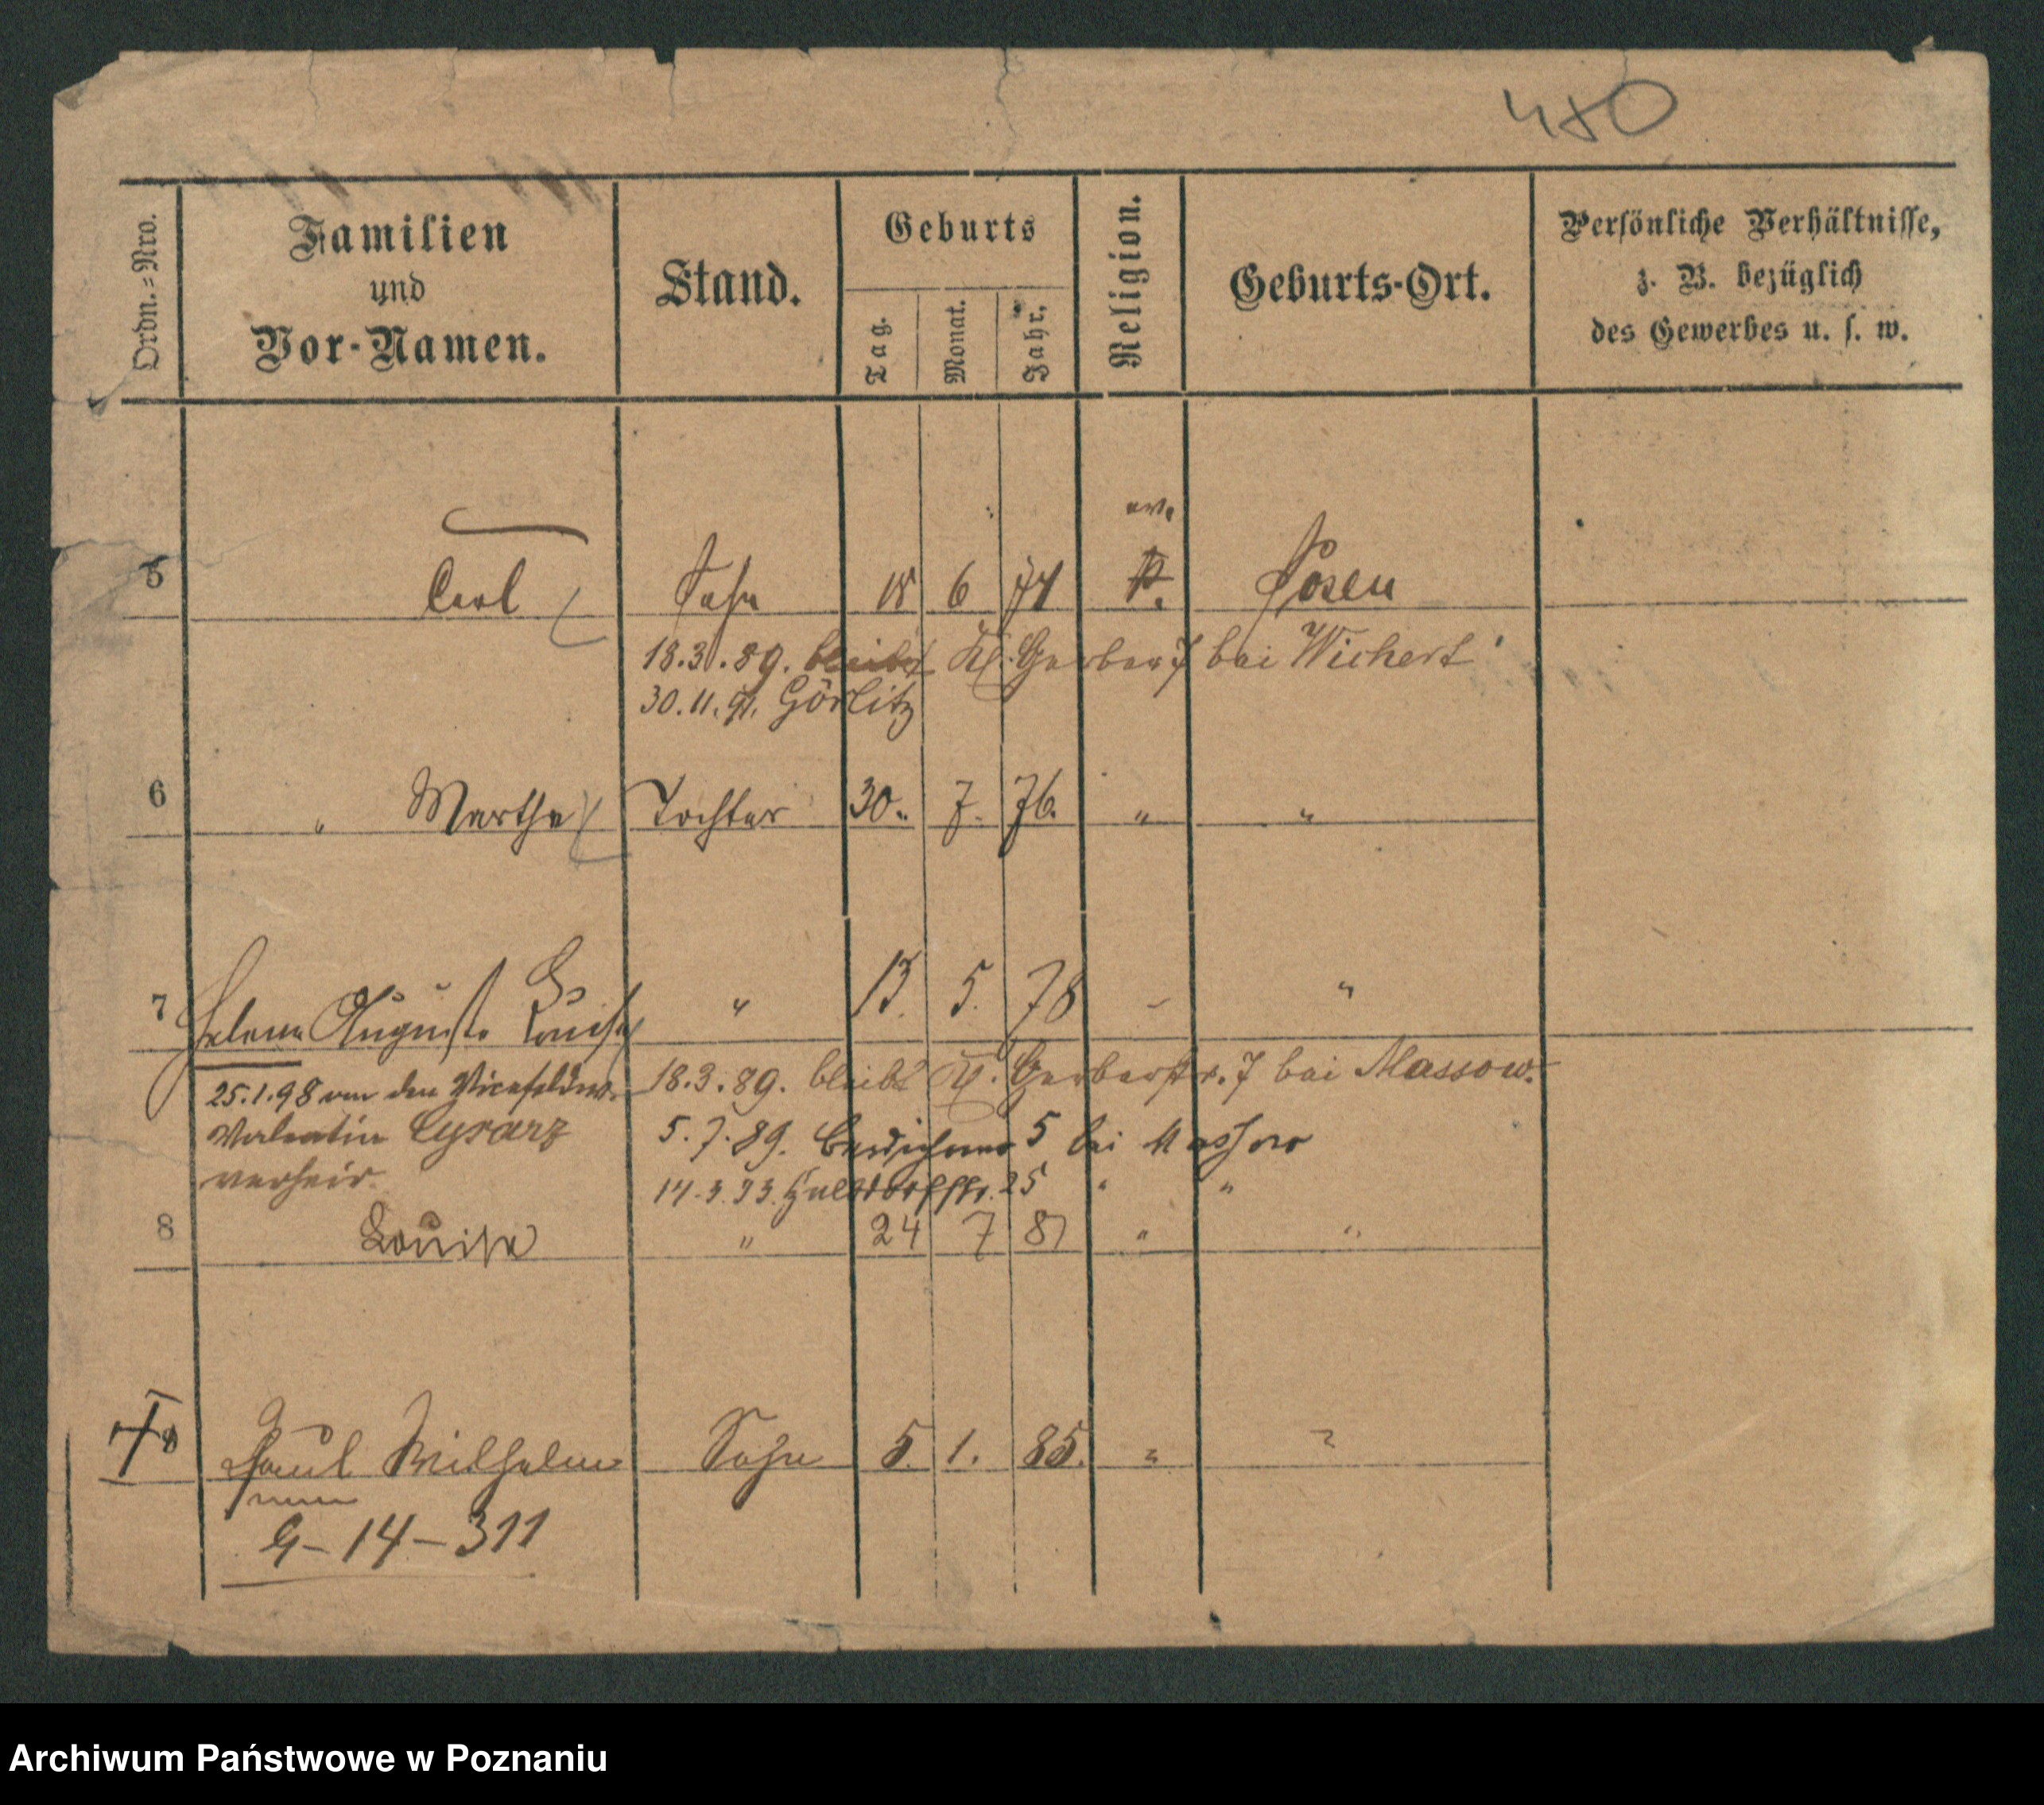 480
Ordn.=Nro.
Familien
und
Vor-Namen.
Stand.
Geburts
Tag.
Monat.
Jahr.
Religion.
Geburts-Ort.
Persönliche Verhältnisse,
z. B. bezüglich
des Gewerbes u. s. w.
ev.
5 Carl Sohn 18 6 74 K. Posen
18.3.89. bleibt Kl. Gerber 7 bei Wichert
30.11.91. Görlitz
6 " Marthe Tochter 30. 7. 76. " "
7 Helene Auguste Louise " 13. 5. 78 "
25.1.98 von den Vicefeldw.
Valentin Cyrarz
verheir.
18.3.89. bleibt Kl. Gerberstr. 7 bei Massow.
5.7.89. 5 bei Massow
14.3.93. 25 " "
8 Louise " 24 7 81 " "
8 Paul Wilhelm Sohn 5. 1. 85. " "
G-14-311
Archiwum Państwowe w Poznaniu